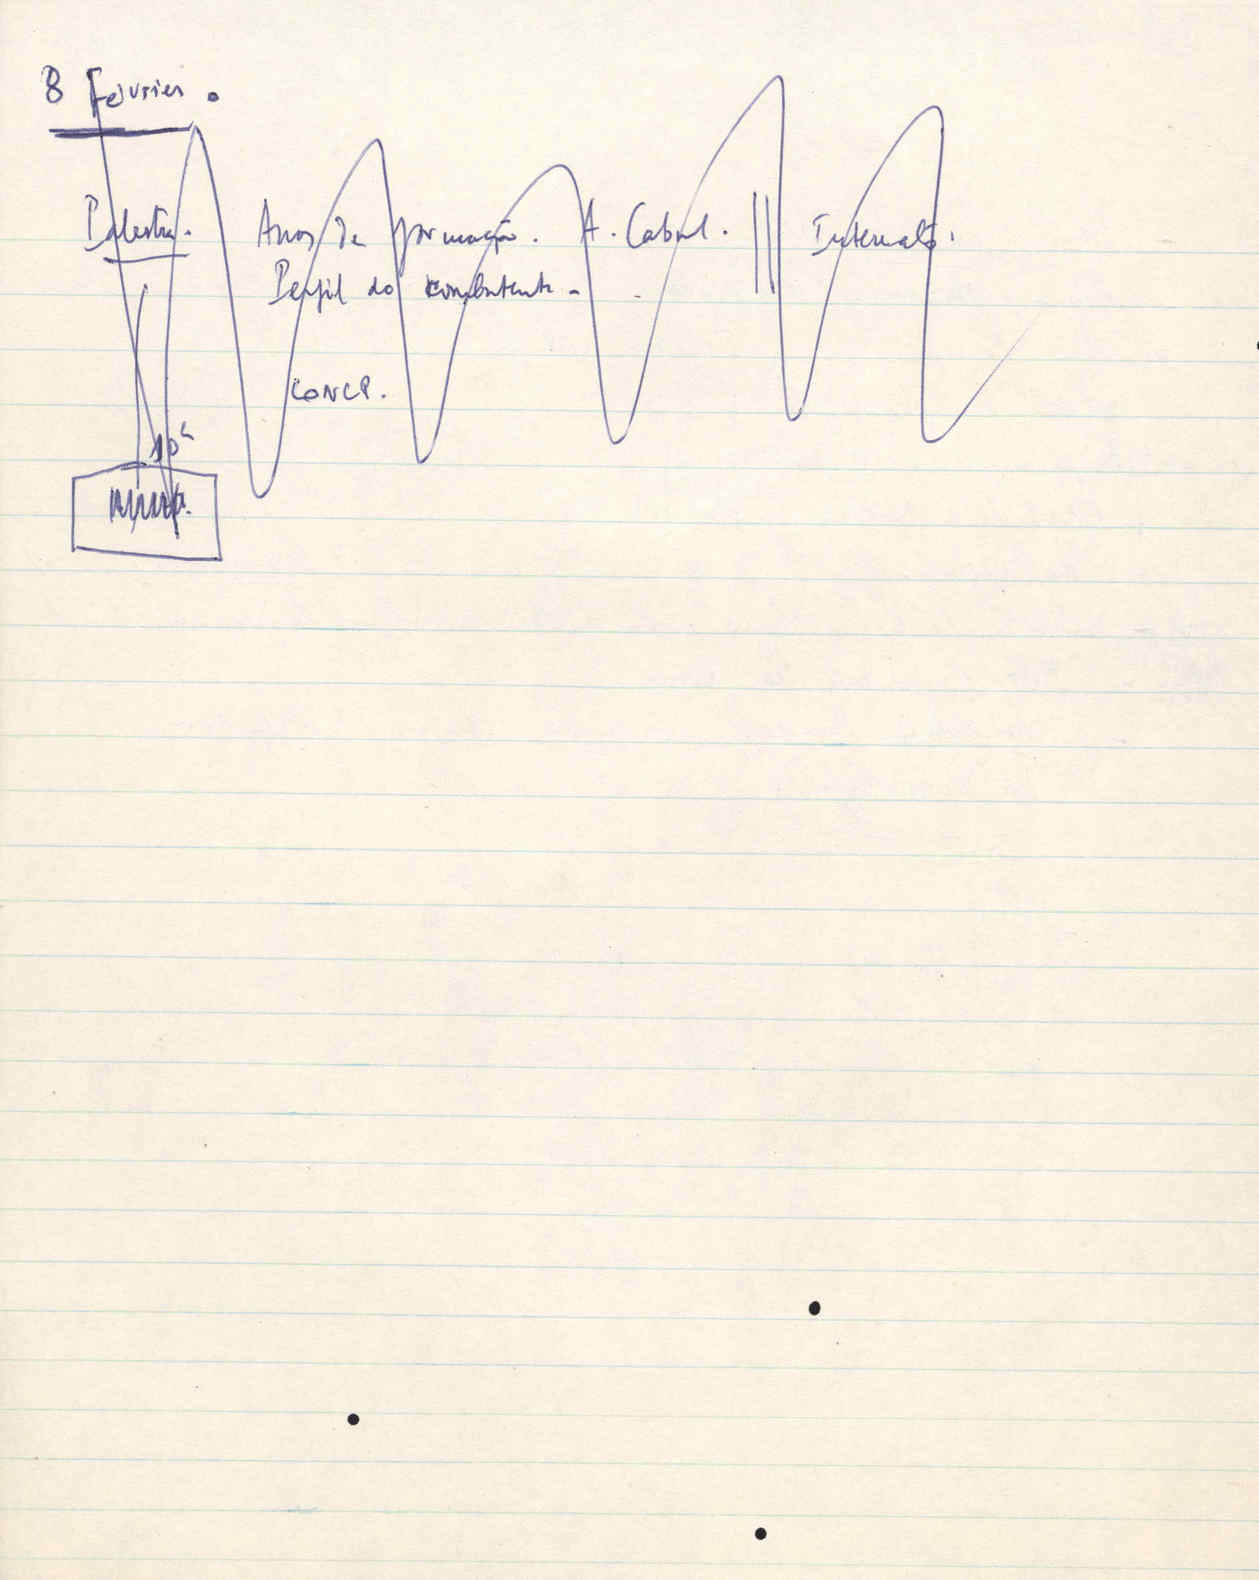 8 Février.
Palestra. Anos de formação. A. Cabral. || Internato.
Perfil do combatente -
CONCP.
10h